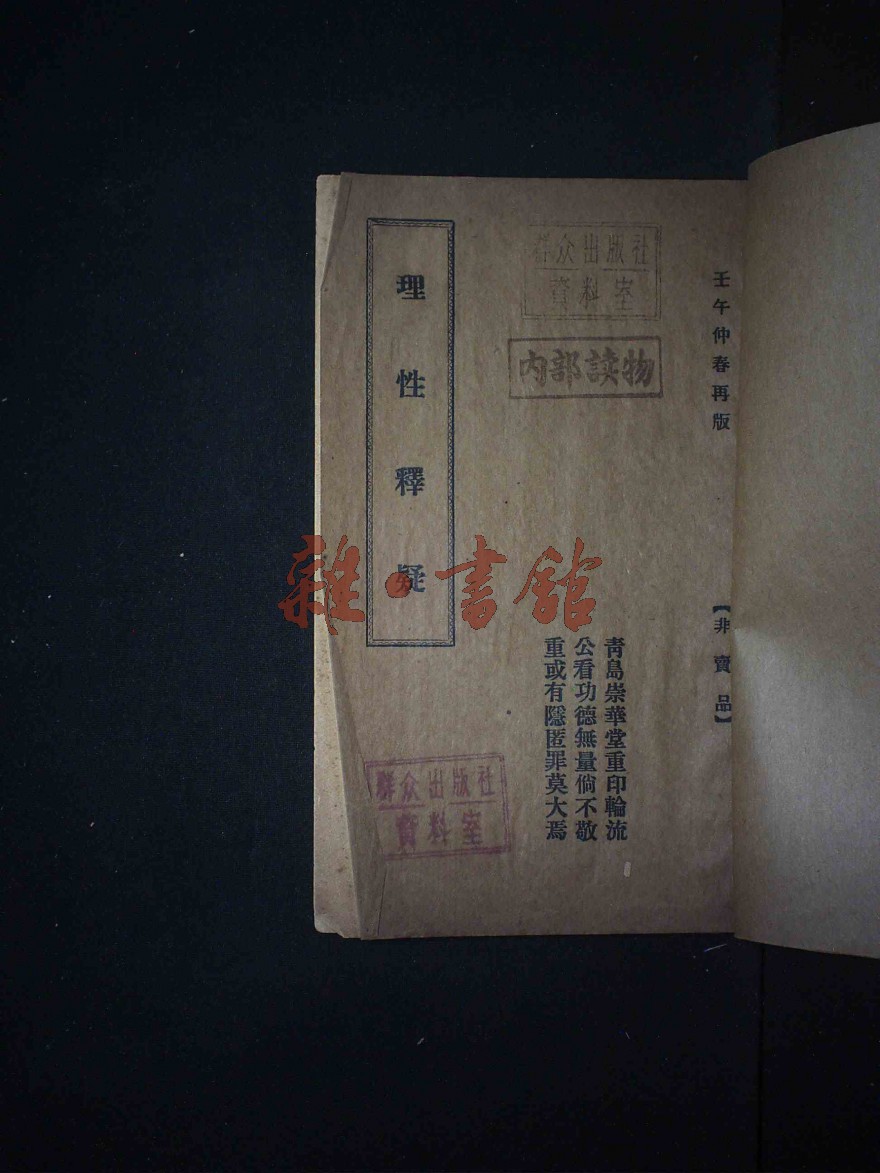 壬午仲春再版
【非賣品】
群众出版社
資料室
内部读物
青島崇華堂重印輪流
公看功德無量倘不敬
重或有隱匿罪莫大焉
理性釋疑
群众出版社
資料室
雜·書館